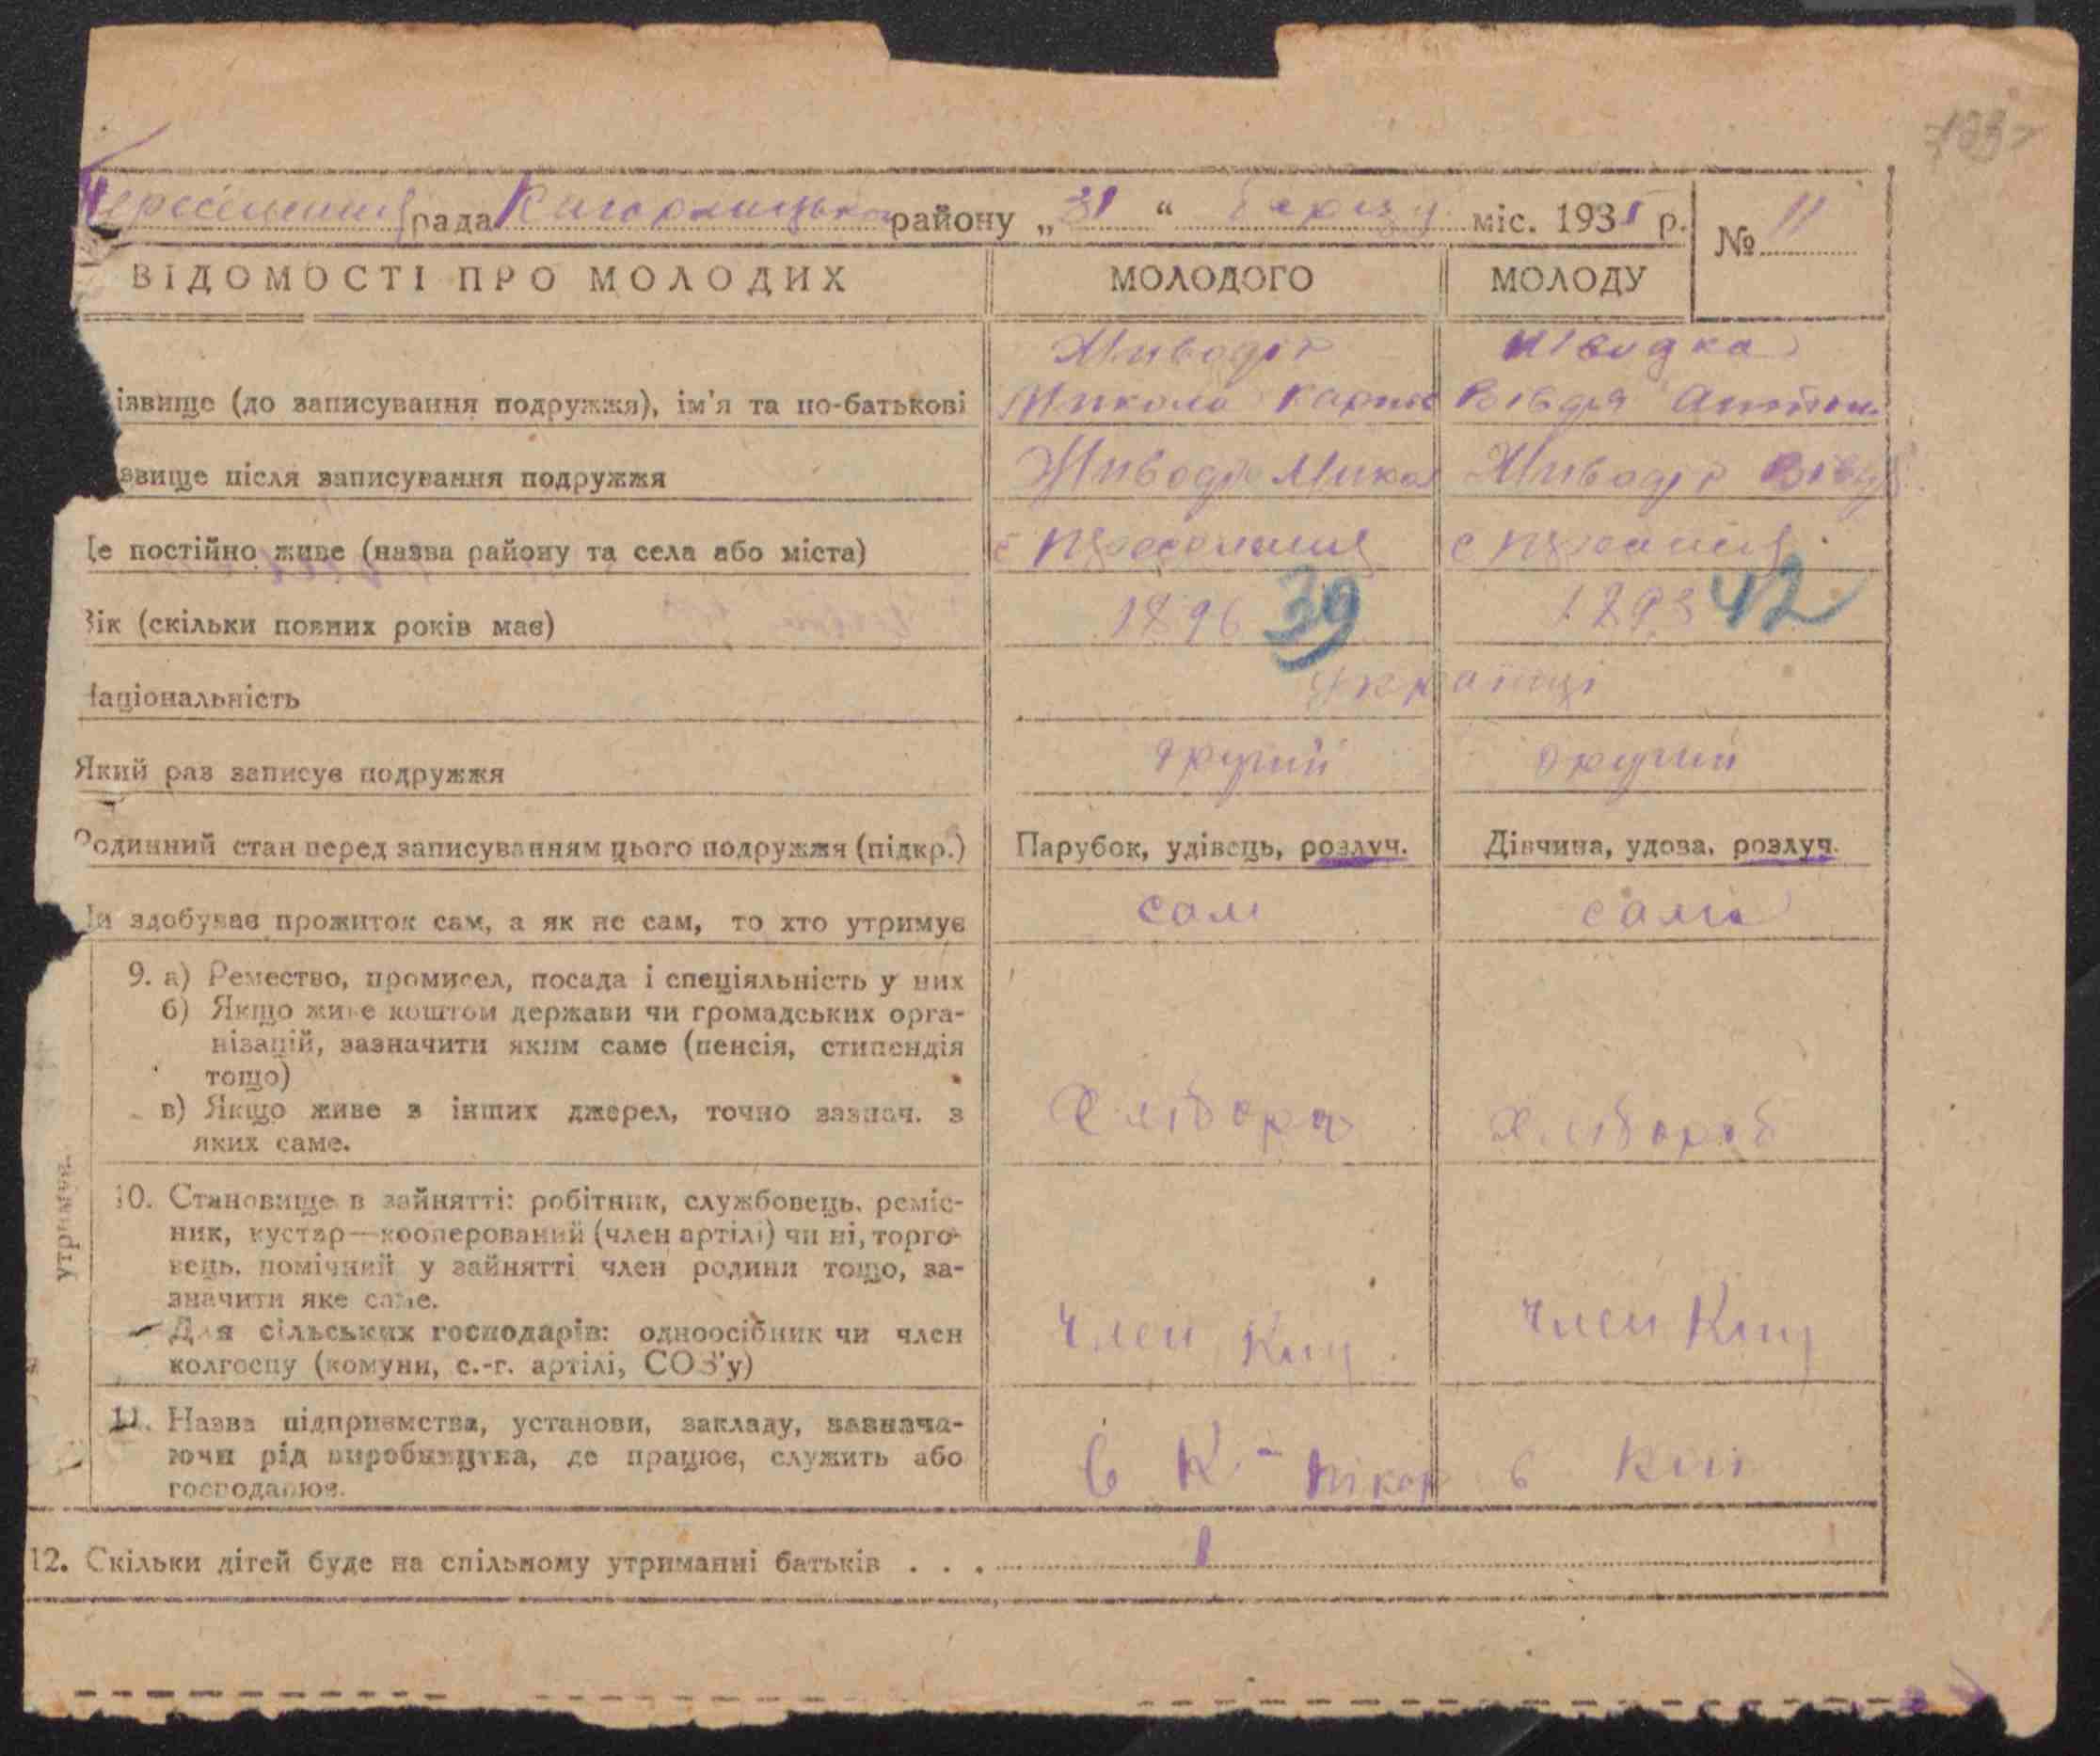 рада Кагарлицького району „31“ березня міс. 1935 р. № 11
ВІДОМОСТІ ПРО МОЛОДИХ МОЛОДОГО МОЛОДУ
Живодір Швидка
ізвище (до записування подружжя), ім'я та по-батькові Микола Карпов Вівдя Антон.
звище після записування подружжя Живодір Микол Живодір Вівдя
е постійно живе (назва району та села або міста) с с
Вік (скільки повних років має) 1896 39 1893 42
Національність українці
Який раз записує подружжя другий другий
Родинний стан перед записуванням цього подружжя (підкр.) Парубок, удівець, розлуч. Дівчина, удова, розлуч.
здобуває прожиток сам, а як не сам, то хто утримує сам сама
9. а) Ремество, промисел, посада і спеціяльність у них
б) Якщо живе коштом держави чи громадських орга-
нізацій, зазначити яким саме (пенсія, стипендія
тощо)
в) Якщо живе з інших джерел, точно зазнач. з Хлібороб Хлібороб
яких саме.
утримув.
10. Становище в зайнятті: робітник, службовець, реміс-
ник, кустар—кооперований (член артілі) чи ні, торго-
вець, помічний у зайнятті член родини тощо, за-
значити яке саме.
Для сільських господарів: одноосібник чи член член член
колгоспу (комуни, с.-г. артілі, СОЗ'у)
11. Назва підприємства, установи, закладу, зазнача-
ючи рід виробництва, де працює, служить або в К- в
господарює.
12. Скільки дітей буде на спільному утриманні батьків . . . 1